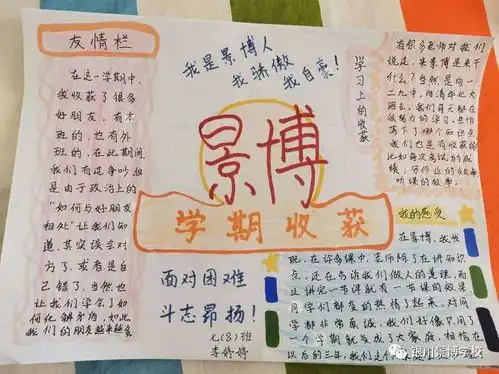 友情栏
在这一学期中,
我收获了很多
好朋友,有本
班的,也有外
班的,在此期间
我们有过争吵,但
是由于政治上的
"如何与好朋友
相处"让我们知
道,其实误会对
方了,或者是自
己错了,当然也
让我们学会了如
何化解矛盾,如此
我们的朋友越来越多
我是景博人
我骄傲
我自豪!
景博
学期收获
面对困难
斗志昂扬!
七(8)班
李婷婷
学习上的收获
有很多老师对我们
说过,来景博是来干
什么?当然是向一
二九中,
我们每天都在
很努力的学习,
落下了哪个知识点
我们也是有收获的
比如每次考试的成
绩,写作业的效率
听课的效率。
我的感受
在景博,我发
现,在许多课中,老师除了在讲知识
点,还在告诉我们做人的道理,而
且讲完一节课就有一节课的效果
同学们都变的热情了起来,对同
学都非常真诚,我们好像只用了
一个学期就变成了大家庭,相信在
以后的三年,我们
银川景博学校